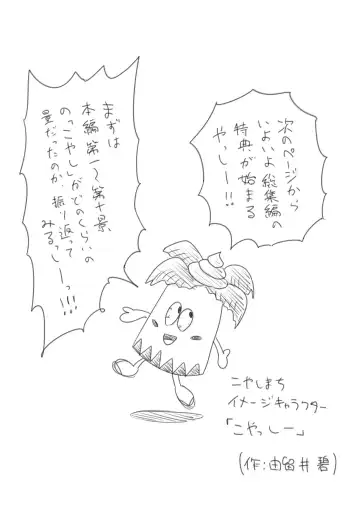 次のページから
いよいよ総集編の
特典が始まる
やっしー!!
まずは
本編第一～第十景、
の「こやし」がどのくらいの
量だったのか、振り返って
みるっしーっ!!!
こやしまち
イメージキャラクター
「こやっしー」
(作:由留井碧)